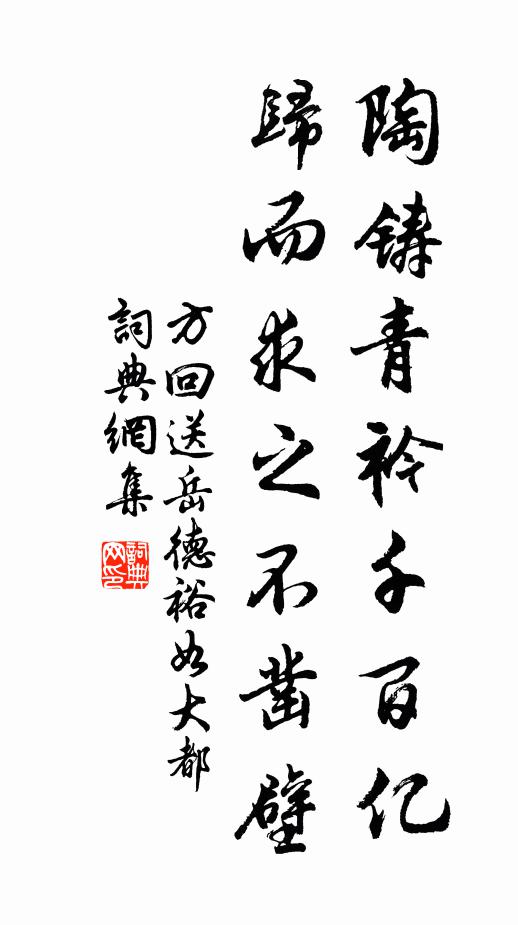 陶鑄青衿千百亿
歸而求之不凿壁
方回送岳德裕如大都
詞典網集
詞典网印